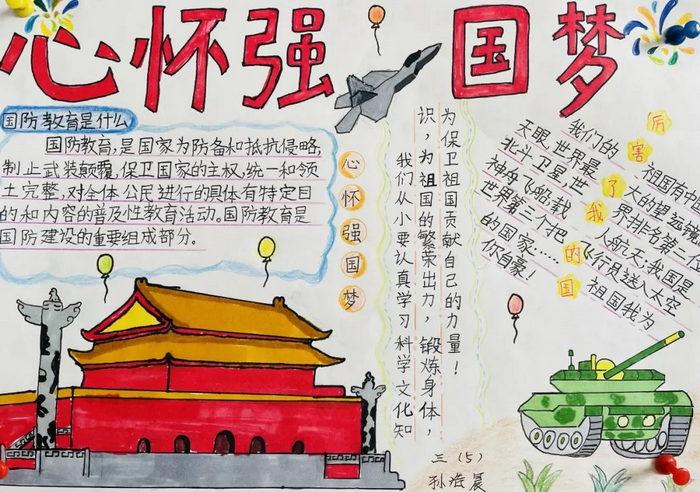 心怀强国梦
国防教育是什么
国防教育,是国家为防备和抵抗侵略,
制止武装颠覆,保卫国家的主权,统一和领
土完整,对全体公民进行的具体有特定目
的和内容的普及性教育活动。国防教育是
国防建设的重要组成部分。
心怀强国梦
我们从小要认真学习科学文化知
识,为祖国的繁荣出力,锻炼身体,
为保卫祖国贡献自己的力量!
厉害了我的国
我们的祖国有中
天眼,世界最大的望远镜
北斗卫星,世界排名第一
神舟飞船载人航天,我国是
世界第三个把飞行员送入太空
的国家……祖国我为
你自豪!
三(5)
孙浩晨